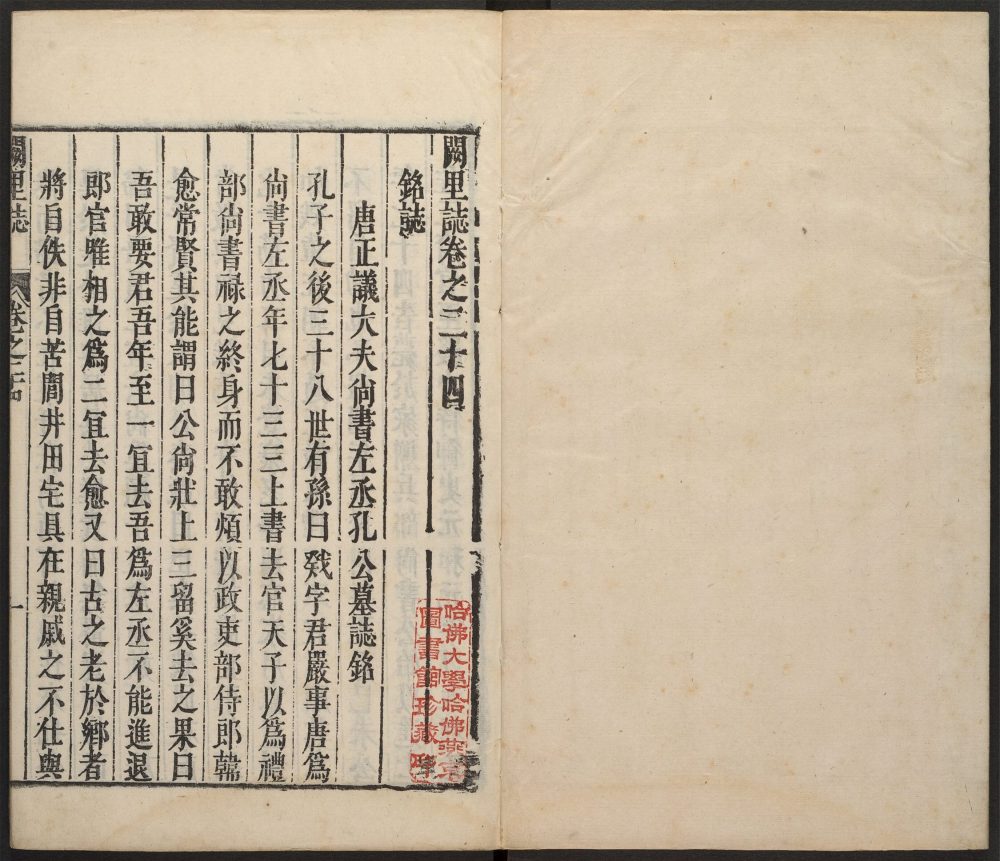 闕里誌卷之二十四
銘誌
唐正議大夫尙書左丞孔公墓誌銘
孔子之後三十八世有孫曰戣字君嚴事唐爲
尙書左丞年七十三三上書去官天子以爲禮
部尙書祿之終身而不敢煩以政吏部侍郎韓
愈常賢其能謂曰公尙壯上三留奚去之果曰
吾敢要君吾年至一宜去吾爲左丞不能進退
郎官唯相之爲二宜去愈又曰古之老於鄉者
將自佚非自苦閭井田宅具在親戚之不仕與
闕里誌
卷之二十四
一
哈佛大學哈佛燕京
圖書館珍藏印